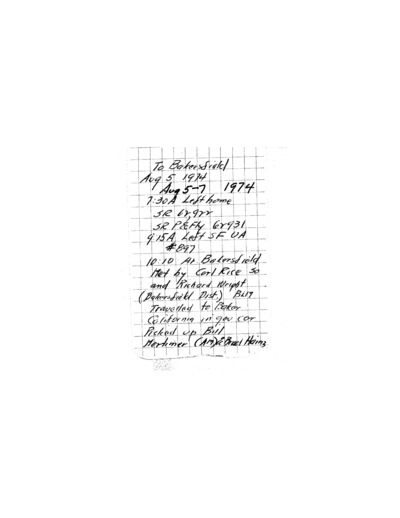 To Bakersfield
Aug 5 1974
Aug 5-7 1974
7:30A Left home
SR
SR P&Fly 6r931
9:15A Left SF UA
#897
10:10 Ar Bakersfield
Met by Carl Rice so
and Richard
(Bakersfield Dist) BLM
Traveled to Baker
California in gov car
Picked up Bill
Mortimer (AM)&